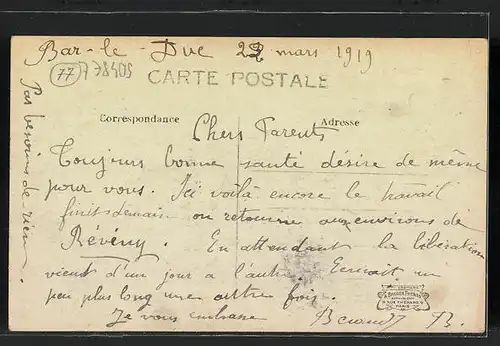 Bar-le-Duc 22 mars 1919
77 A 78405
CARTE POSTALE
Correspondance
Adresse
Chers Parents
Toujours bonne santé désire de même
pour vous. Ici voilà encore le travail
finit demain on retourne aux environs de
Révény. En attendant la libération
vient d'un jour a l'autre. Ecrirait un
peu plus long une auttre fois.
Je vous embrasse B.
Pas besoins de rien